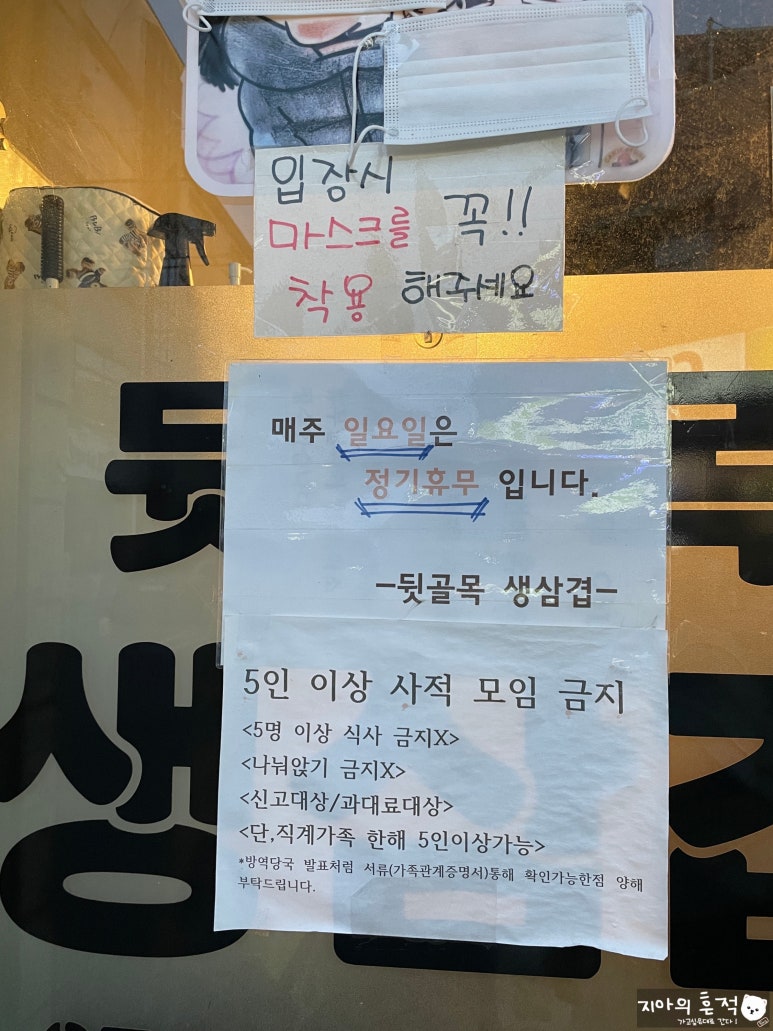 입장시 꼭!!
마스크를
착용 해주세요
매주 일요일은
정기휴무 입니다.
-뒷골목 생삼겹-
5인 이상 사적 모임 금지
<5명 이상 식사 금지X>
<나눠앉기 금지X>
<신고대상/과대료대상>
<단,직계가족 한해 5인이상가능>
*방역당국 발표처럼 서류(가족관계증명서)통해 확인가능한점 양해
부탁드립니다.
뒷
생
지아의 흔적
가고싶은대로 간다!